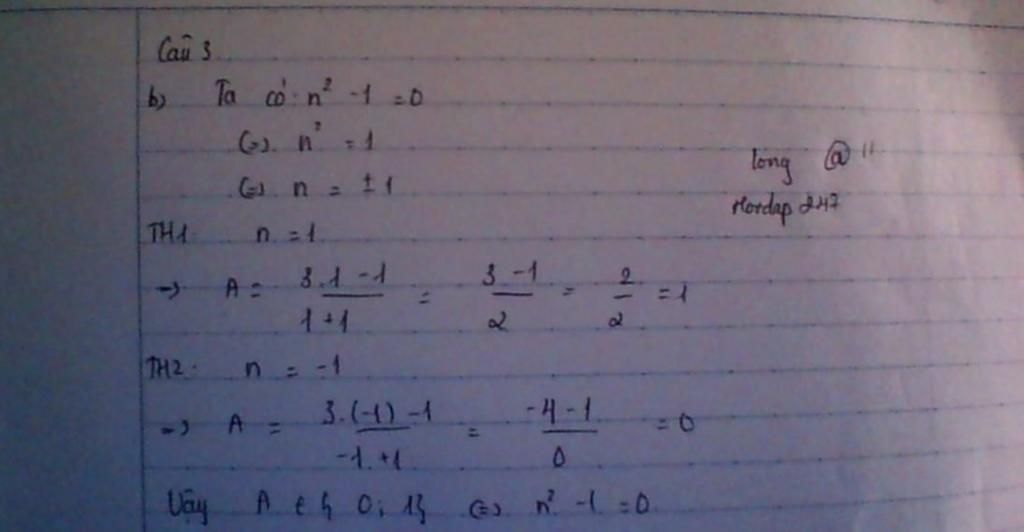 Câu 3
b) Ta có: n² - 1 = 0
(=) n² = 1
(=) n = ± 1
long @ "
Hordap 247
TH1: n = 1
-> A = (3.1 - 1)/(1 + 1) = (3 - 1)/2 = 2/2 = 1
TH2: n = -1
-> A = (3.(-1) - 1)/(-1 + 1) = (-4 - 1)/0 = 0
Vậy A ∈ { 0; 1} (=) n² - 1 = 0